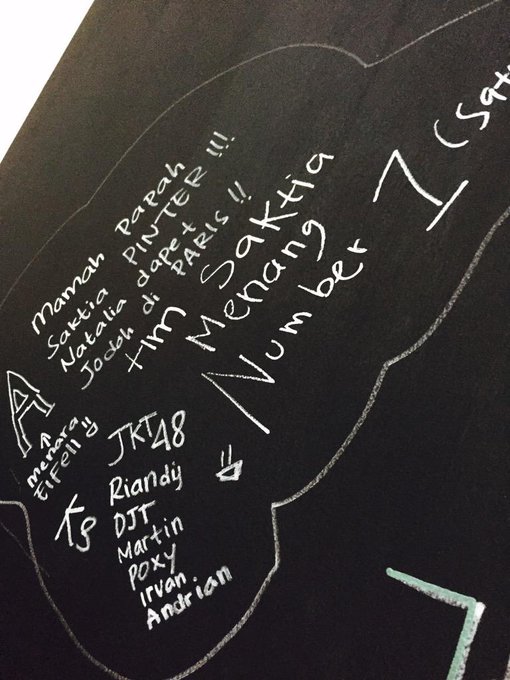 Mamah Papah
Saktia PINTER !!!
Natalia dapet
Jodoh di PARIS !!
tim Saktia
Menang
Number 1 (Sat
A
↑
menara
EiFell
JKT48
Riandy
DJT
Martin
Poxy
Irvan
Andrian